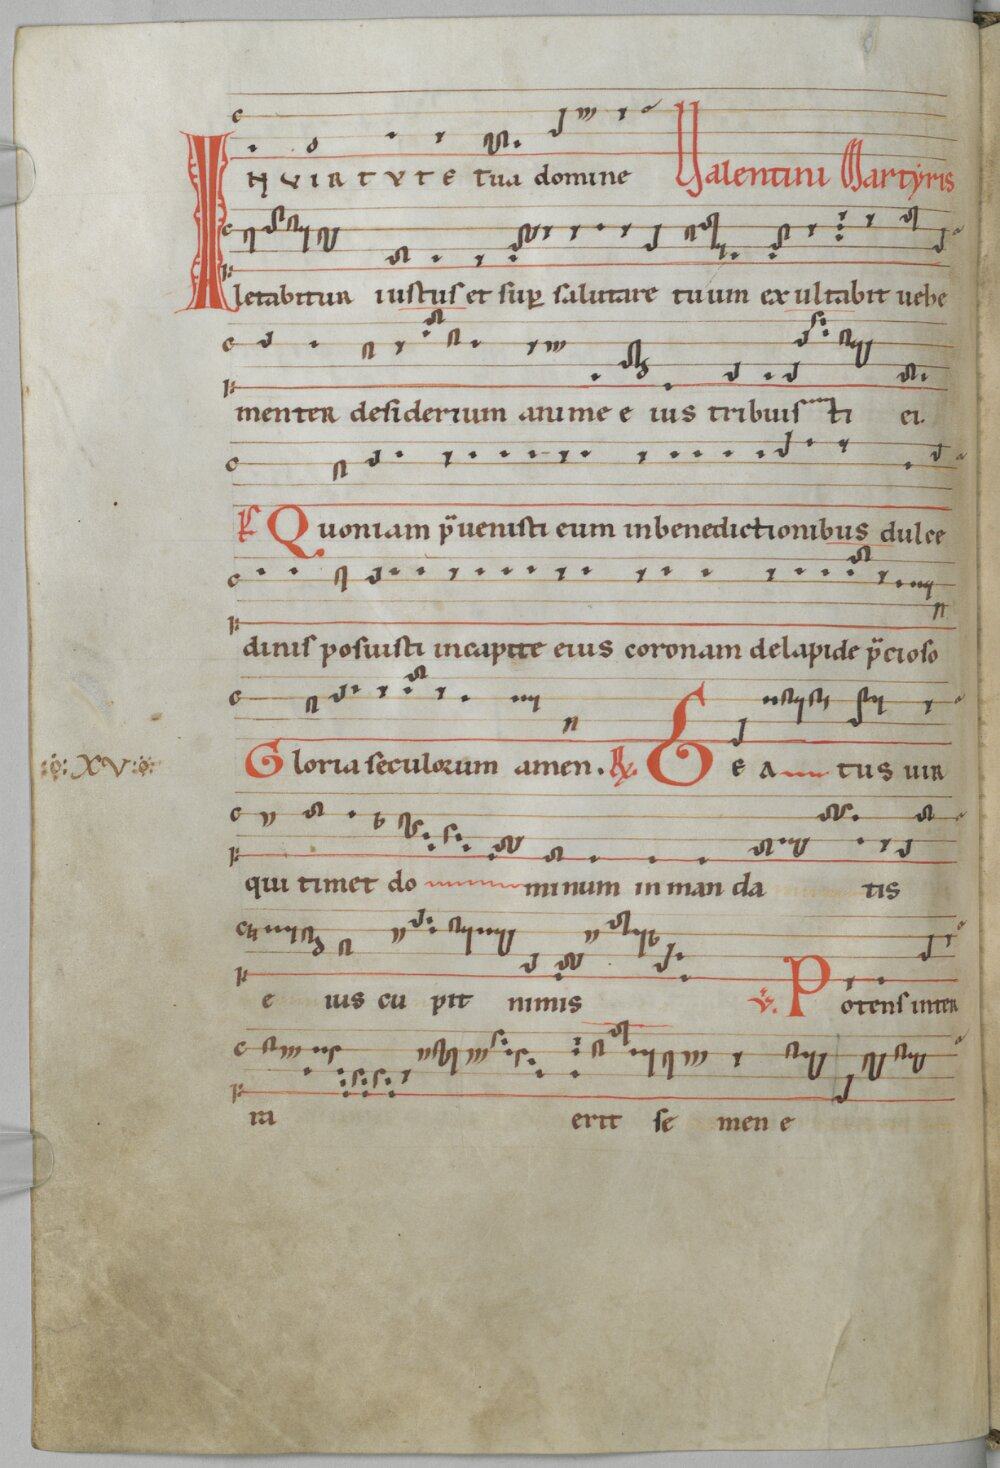 IN VIRTVTE tua domine Valentini Martyris
letabitur iustus et sup̲ salutare tuum exultabit uehe
menter desiderium anime eius tribuisti ei.
Ps Quoniam p̃uenisti eum inbenedictionibus dulce
dinis posuisti incapite eius coronam delapide p̃cioso
Gloria seculorum amen. R̸. BEATUS UIR
:XV:
qui timet dominum inmandatis
eius cupit nimis V̸. Potens inter
ra erit semen e